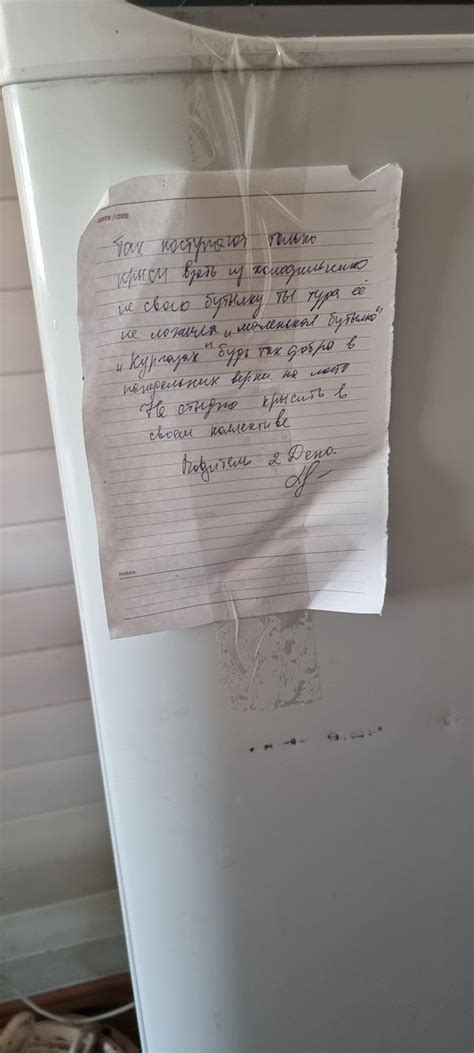 дата / date
Так поступают только
крысы взять из холодильника
не свою бутылку ты туда её
не ложила и маленькая бутылка
и "Кургазак" будь так добра в
понедельник верни на место
Не стыдно крысить в
своем коллективе
Водитель 2 Депо.